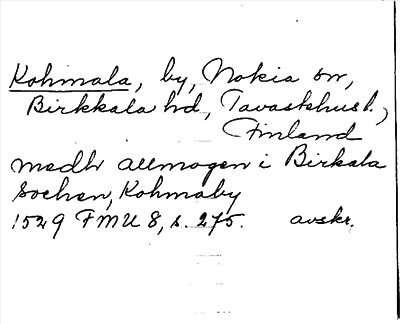 Kohmala, by, Nokia sn,
Birkkala hd, Tavastehus l.,
Finland
medh allmogen i Birkala
Sochen, Kohmaby
1529 FMU 8, s. 275. avskr.